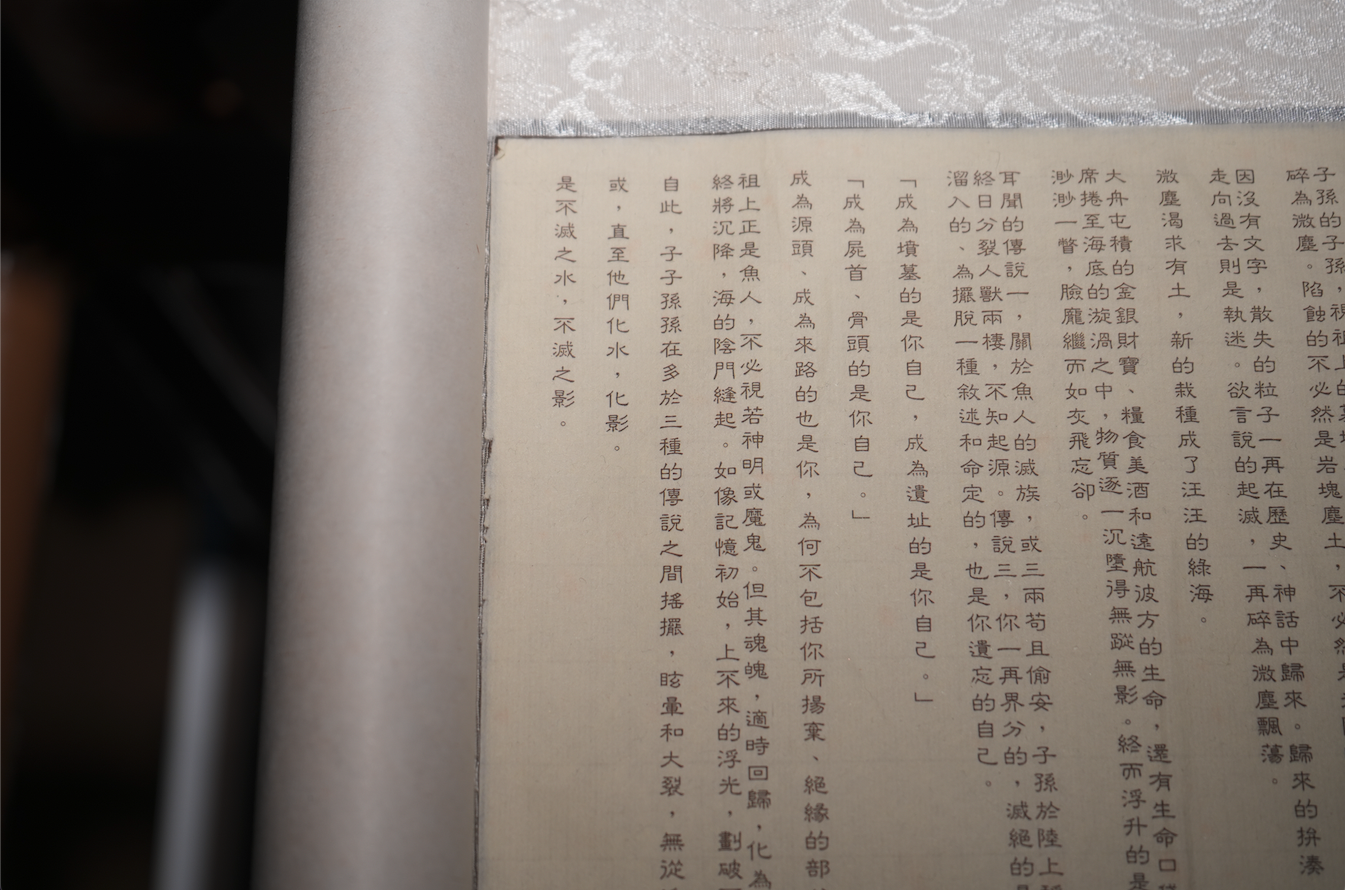 子孫的子孫，視祖上的
碎為微塵。陷蝕的不必然是岩塊塵土，不必然
因沒有文字，散失的粒子一再在歷史、神話中歸來。歸來的拚湊
走向過去則是執迷。欲言說的起滅，一再碎為微塵飄蕩。
微塵渴求有土，新的栽種成了汪汪的綠海。
大舟屯積的金銀財寶、糧食美酒和遠航波方的生命，還有生命口
席捲至海底的旋渦之中，物質逐一沉墮得無蹤無影。終而浮升的是
渺渺一瞥，臉龐繼而如灰飛忘卻。
耳聞的傳說一，關於魚人的滅族，或三兩苟且偷安，子孫於陸上
終日分裂人獸兩棲，不知起源。傳說三，你一再界分的，滅絕的
溜入的、為擺脫一種敘述和命定的，也是你遺忘的自己。
「成為墳墓的是你自己，成為遺址的是你自己。」
「成為屍首、骨頭的是你自己。」
成為源頭、成為來路的也是你，為何不包括你所揚棄、絕緣的部
祖上正是魚人，不必視若神明或魔鬼。但其魂魄，適時回歸，化為
終將沉降，海的陰門縫起。如像記憶初始，上不來的浮光，劃破
自此，子子孫孫在多於三種的傳說之間搖擺，眩暈和大裂，無從
或，直至他們化水，化影。
是不滅之水，不滅之影。